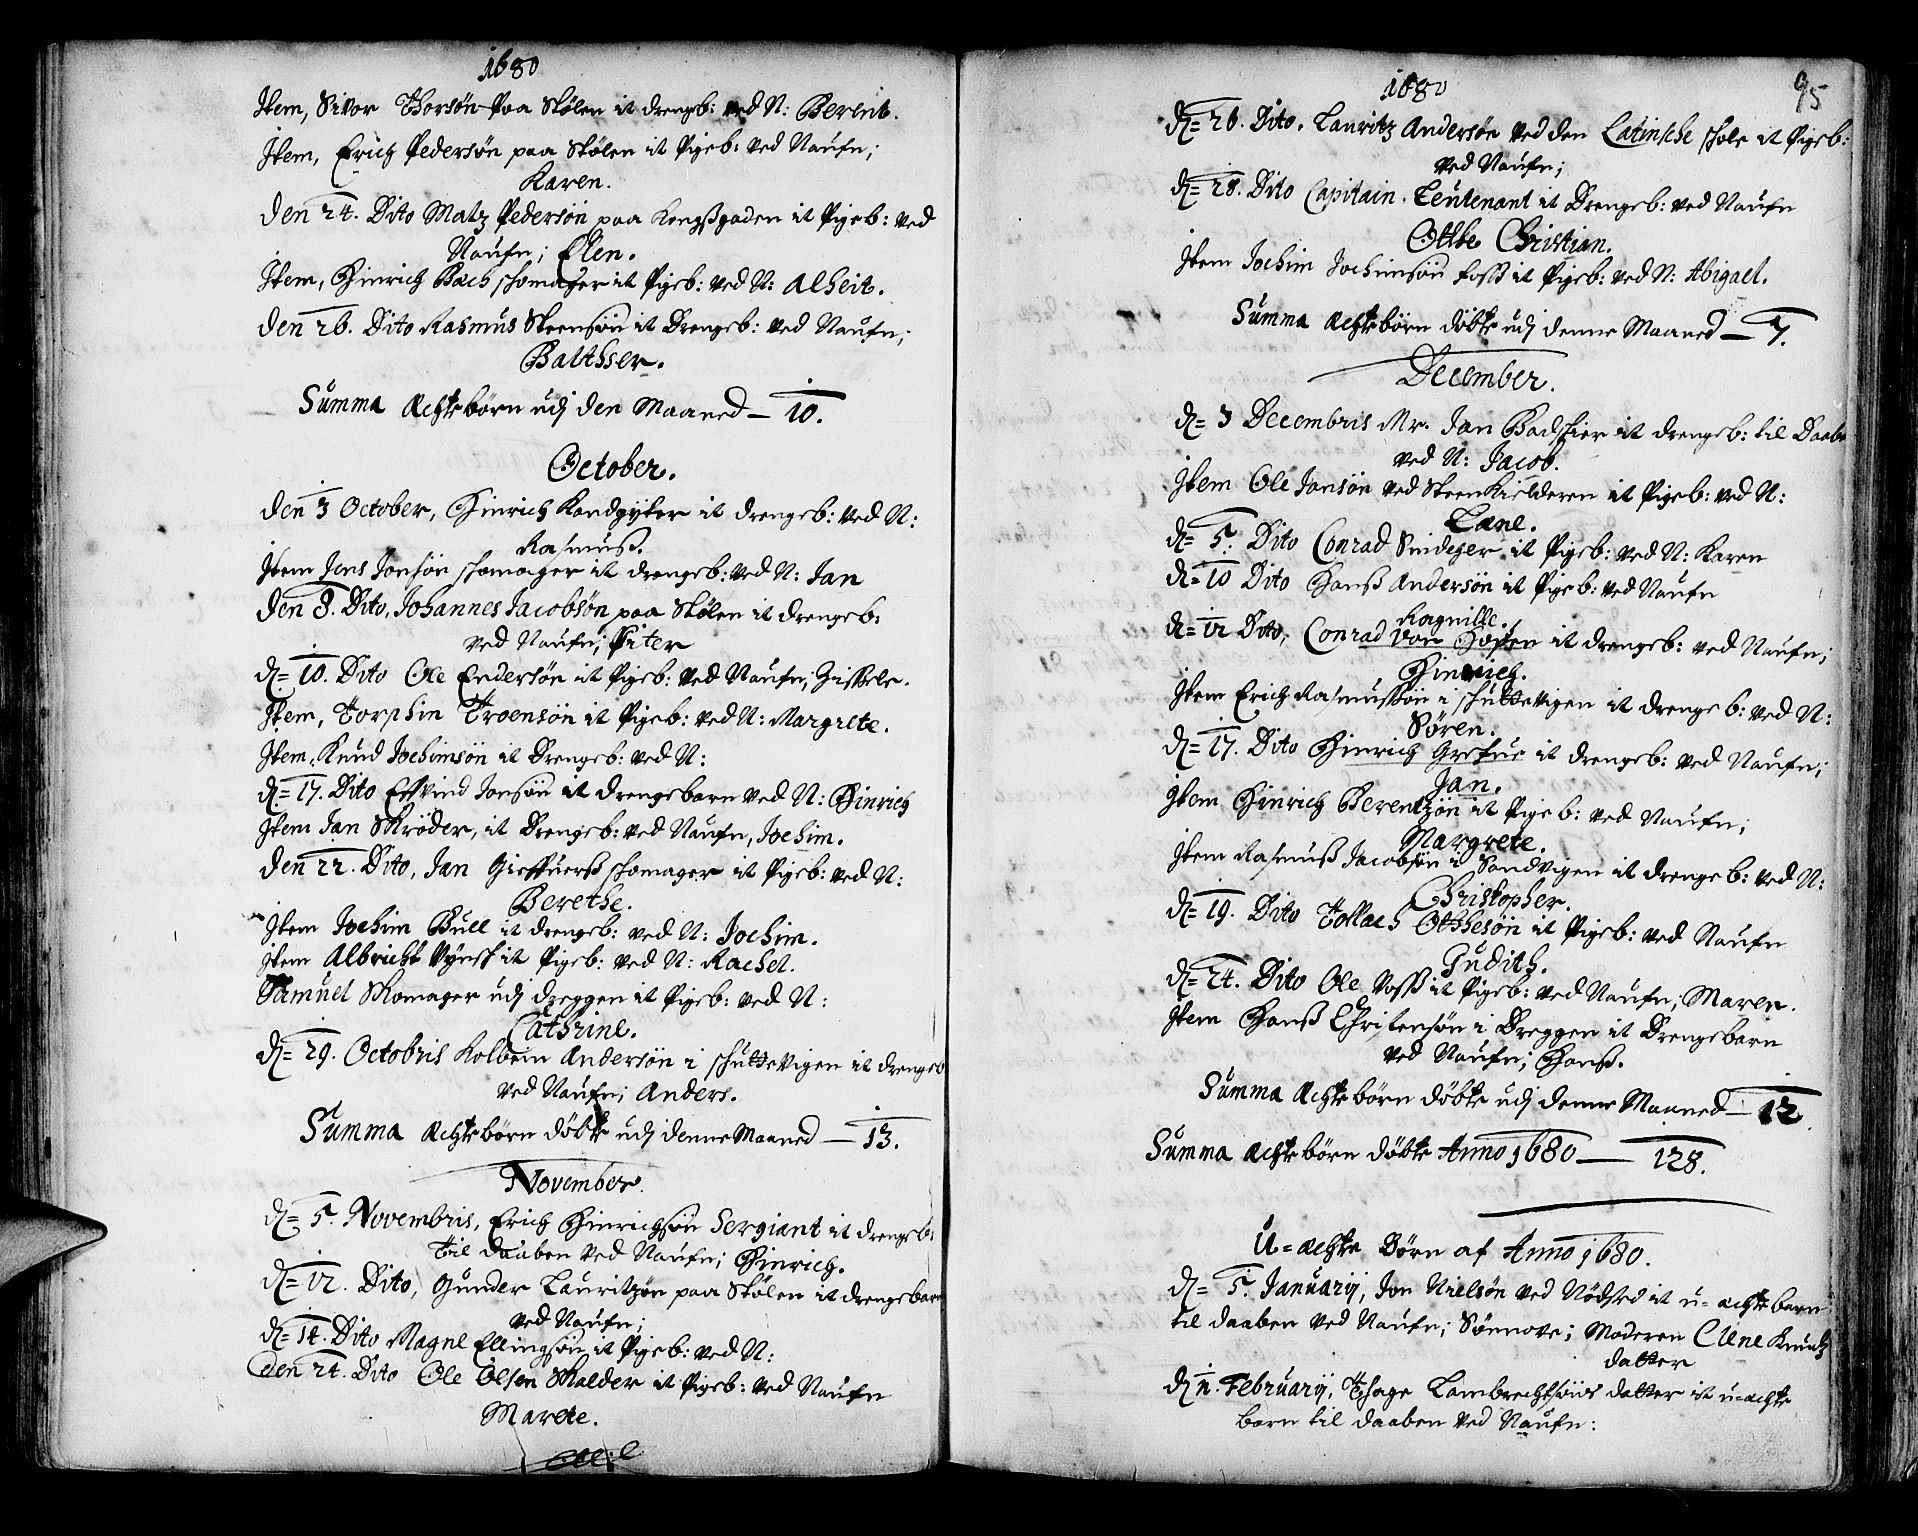 1680
Item, Sivor Thorsøn paa Stølen it drengb: ved N: Berent.
Item, Erich Pedersøn paa Stølen it Pigeb: ved Naufn;
Karen.
Den 24. Dito Matz Pedersøn paa Kongßgaden it Pigeb: ved
Naufn; Elen.
Item, Hinrich Bach shomager it Pigeb: ved N: Alheit.
Den 26. Dito Rasmus Steensøn it Drengeb: ved Naufn;
Balthser.
Summa Achte børn udj den Maaned — 10.
October.
Den 3 October, Hinrich Kandgyter it drengeb: ved N:
Rasmuß.
Item Jens Jonsøn shomager it drengeb: ved N: Jan
Den 8. Dito, Johannes Jacobsøn paa Stølen it drengeb:
ved Naufn; Piter
D= 10. Dito Ole Endersøn it Pigeb: ved Naufn; Zissele.
Item, Torphin Troensøn it Pigeb: ved N: Margrete.
Item, Knud Jochimsøn it Drengeb: ved N:
D= 17. Dito Effvind Jonsøn it drengebarn ved N: Hinrich
Item Jan Skrøder, it Drengeb: ved Naufn, Jochim.
Den 22. Dito, Jan Gieffuerß shomager it Pigeb: ved N:
Berethe.
Item Jochim Bull it drengeb: ved N: Jochim.
Item Albricht Vynsh it Pigeb: ved N: Rachel.
Samuel Skomager udj Dreggen it Pigeb: ved N:
Cathrine.
D= 29. Octobris Kolbein Andersøn i shuttevigen it drengeb
ved Naufn; Anders.
Summa Achte børn døbte udj denne Maaned — 13.
November.
D= 5. Novembris, Erich Hinrichsøn Sergiant it drengeb:
til daaben ved Naufn; Hinrich.
D= 12. Dito, Gunder Lauritzøn paa Stølen it drengebarn
ved Naufn;
D= 14. Dito Magne Ellingsøn it Pigeb: ved N:
Den 24. Dito Ole Olsen Maelder it Pigeb: ved Naufn
Marete.
1680
95
D= 26. Dito. Lauritz Andersøn ved den Latinsche shole it Pigeb:
ved Naufn;
D= 28. Dito Capitain. Leutenant it Drengeb: ved Naufn
Otthe Christian.
Item Jochim Jochimsøn Foss it Pigeb: ved N: Abigael.
Summa Achte børn døbte udj denne Maaned — 7.
December.
D= 3 Decembris Mr. Jan Badshier it drengeb: til Daabe
ved N: Jacob.
Item Ole Jonsøn ved Steenkielderen it Pigeb: ved N:
Læne.
D= 5. Dito Conrad Snideger it Pigeb: ved N: Karen
D= 10 Dito Hanß Andersøn it Pigeb: ved Naufn
Ragnille.
D= 12 Dito, Conrad von Hopten it drengeb: ved Naufn;
Hinrich.
Item Erich Rasmussøn i shuttevigen it drengeb: ved N:
Søren.
D= 17. Dito Hinrich Grefue it drengeb: ved Naufn;
Jan.
Item Hinrich Berentzøn it Pigeb: ved Naufn;
Margrete.
Item Rasmuß Jacobsøn i Sandvigen it drengeb: ved N:
Christopher.
D= 19. Dito Tollach Otthesøn it Pigeb: ved Naufn
Judith.
D= 24. Dito Ole Voss it Pigeb: ved Naufn; Maren.
Item Hanß Christensøn i Dreggen it Drengebarn
ved Naufn; Hanß.
Summa Achte børn døbte udj denne Maaned — 12
Summa Achte børn døbte Anno 1680 — 128.
U=achte Børn af Anno 1680.
D= 5. Januarij, Jon Nielsøn ved Nødsted it u=achte barn
til daaben ved Naufn; Sønnove; Moderen Elene Knudtz
datter
D= 2. Februarij, Thage Lambrechtsøns datter it u=achte
barn til daaben ved Naufn: